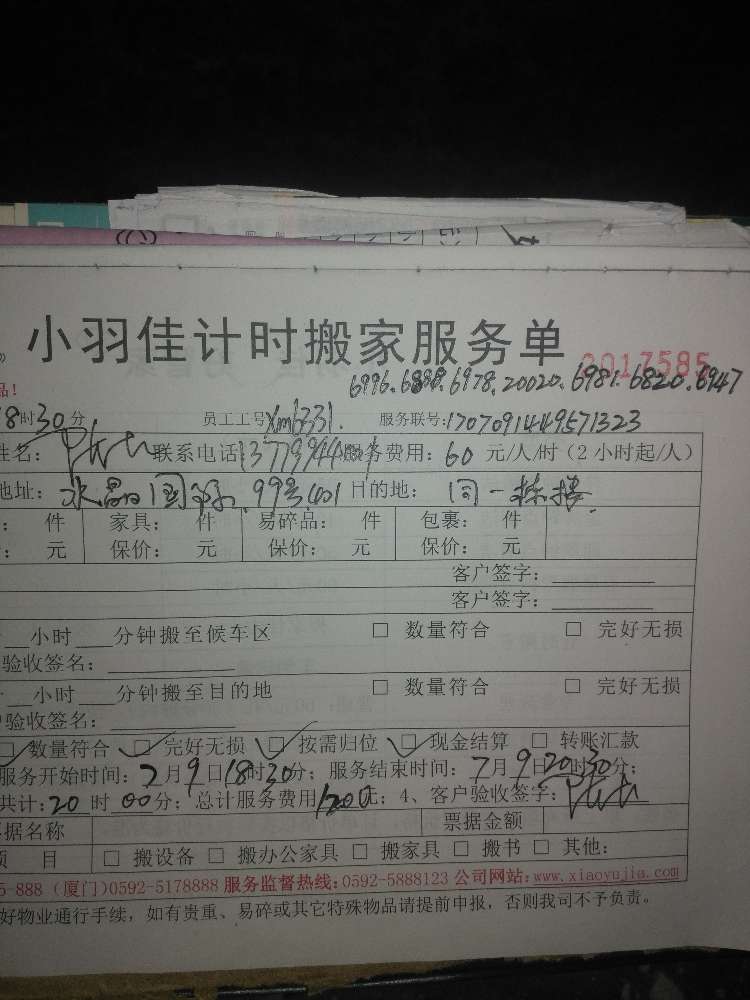 小羽佳计时搬家服务单
2017585
品!
6996.6888.6978.20020.6981.6820.6947
18时30分 员工工号Xm6331. 服务联号:1707091449571323
姓名: 联系电话 服务费用:60元/人/时(2小时起/人)
地址:水晶国际99号 目的地:同一栋楼
: 件 家具: 件 易碎品: 件 包裹: 件
: 元 保价: 元 保价: 元 保价: 元
客户签字:
客户签字:
小时 分钟搬至候车区 □ 数量符合 □ 完好无损
验收签名:
小时 分钟搬至目的地 □ 数量符合 □ 完好无损
户验收签名:
□数量符合 □完好无损 □按需归位 □现金结算 □转账汇款
服务开始时间:7月9日18时30分;服务结束时间:7月9日20时30分;
共计:20时00分;总计服务费用1200元;4、客户验收签字:
票据名称 票据金额
项 目 □ 搬设备 □ 搬办公家具 □ 搬家具 □ 搬书 □ 其他:
5-888(厦门)0592-5178888 服务监督热线:0592-5888123 公司网站:www.xiaoyujia.com
好物业通行手续,如有贵重、易碎或其它特殊物品请提前申报,否则我司不予负责。